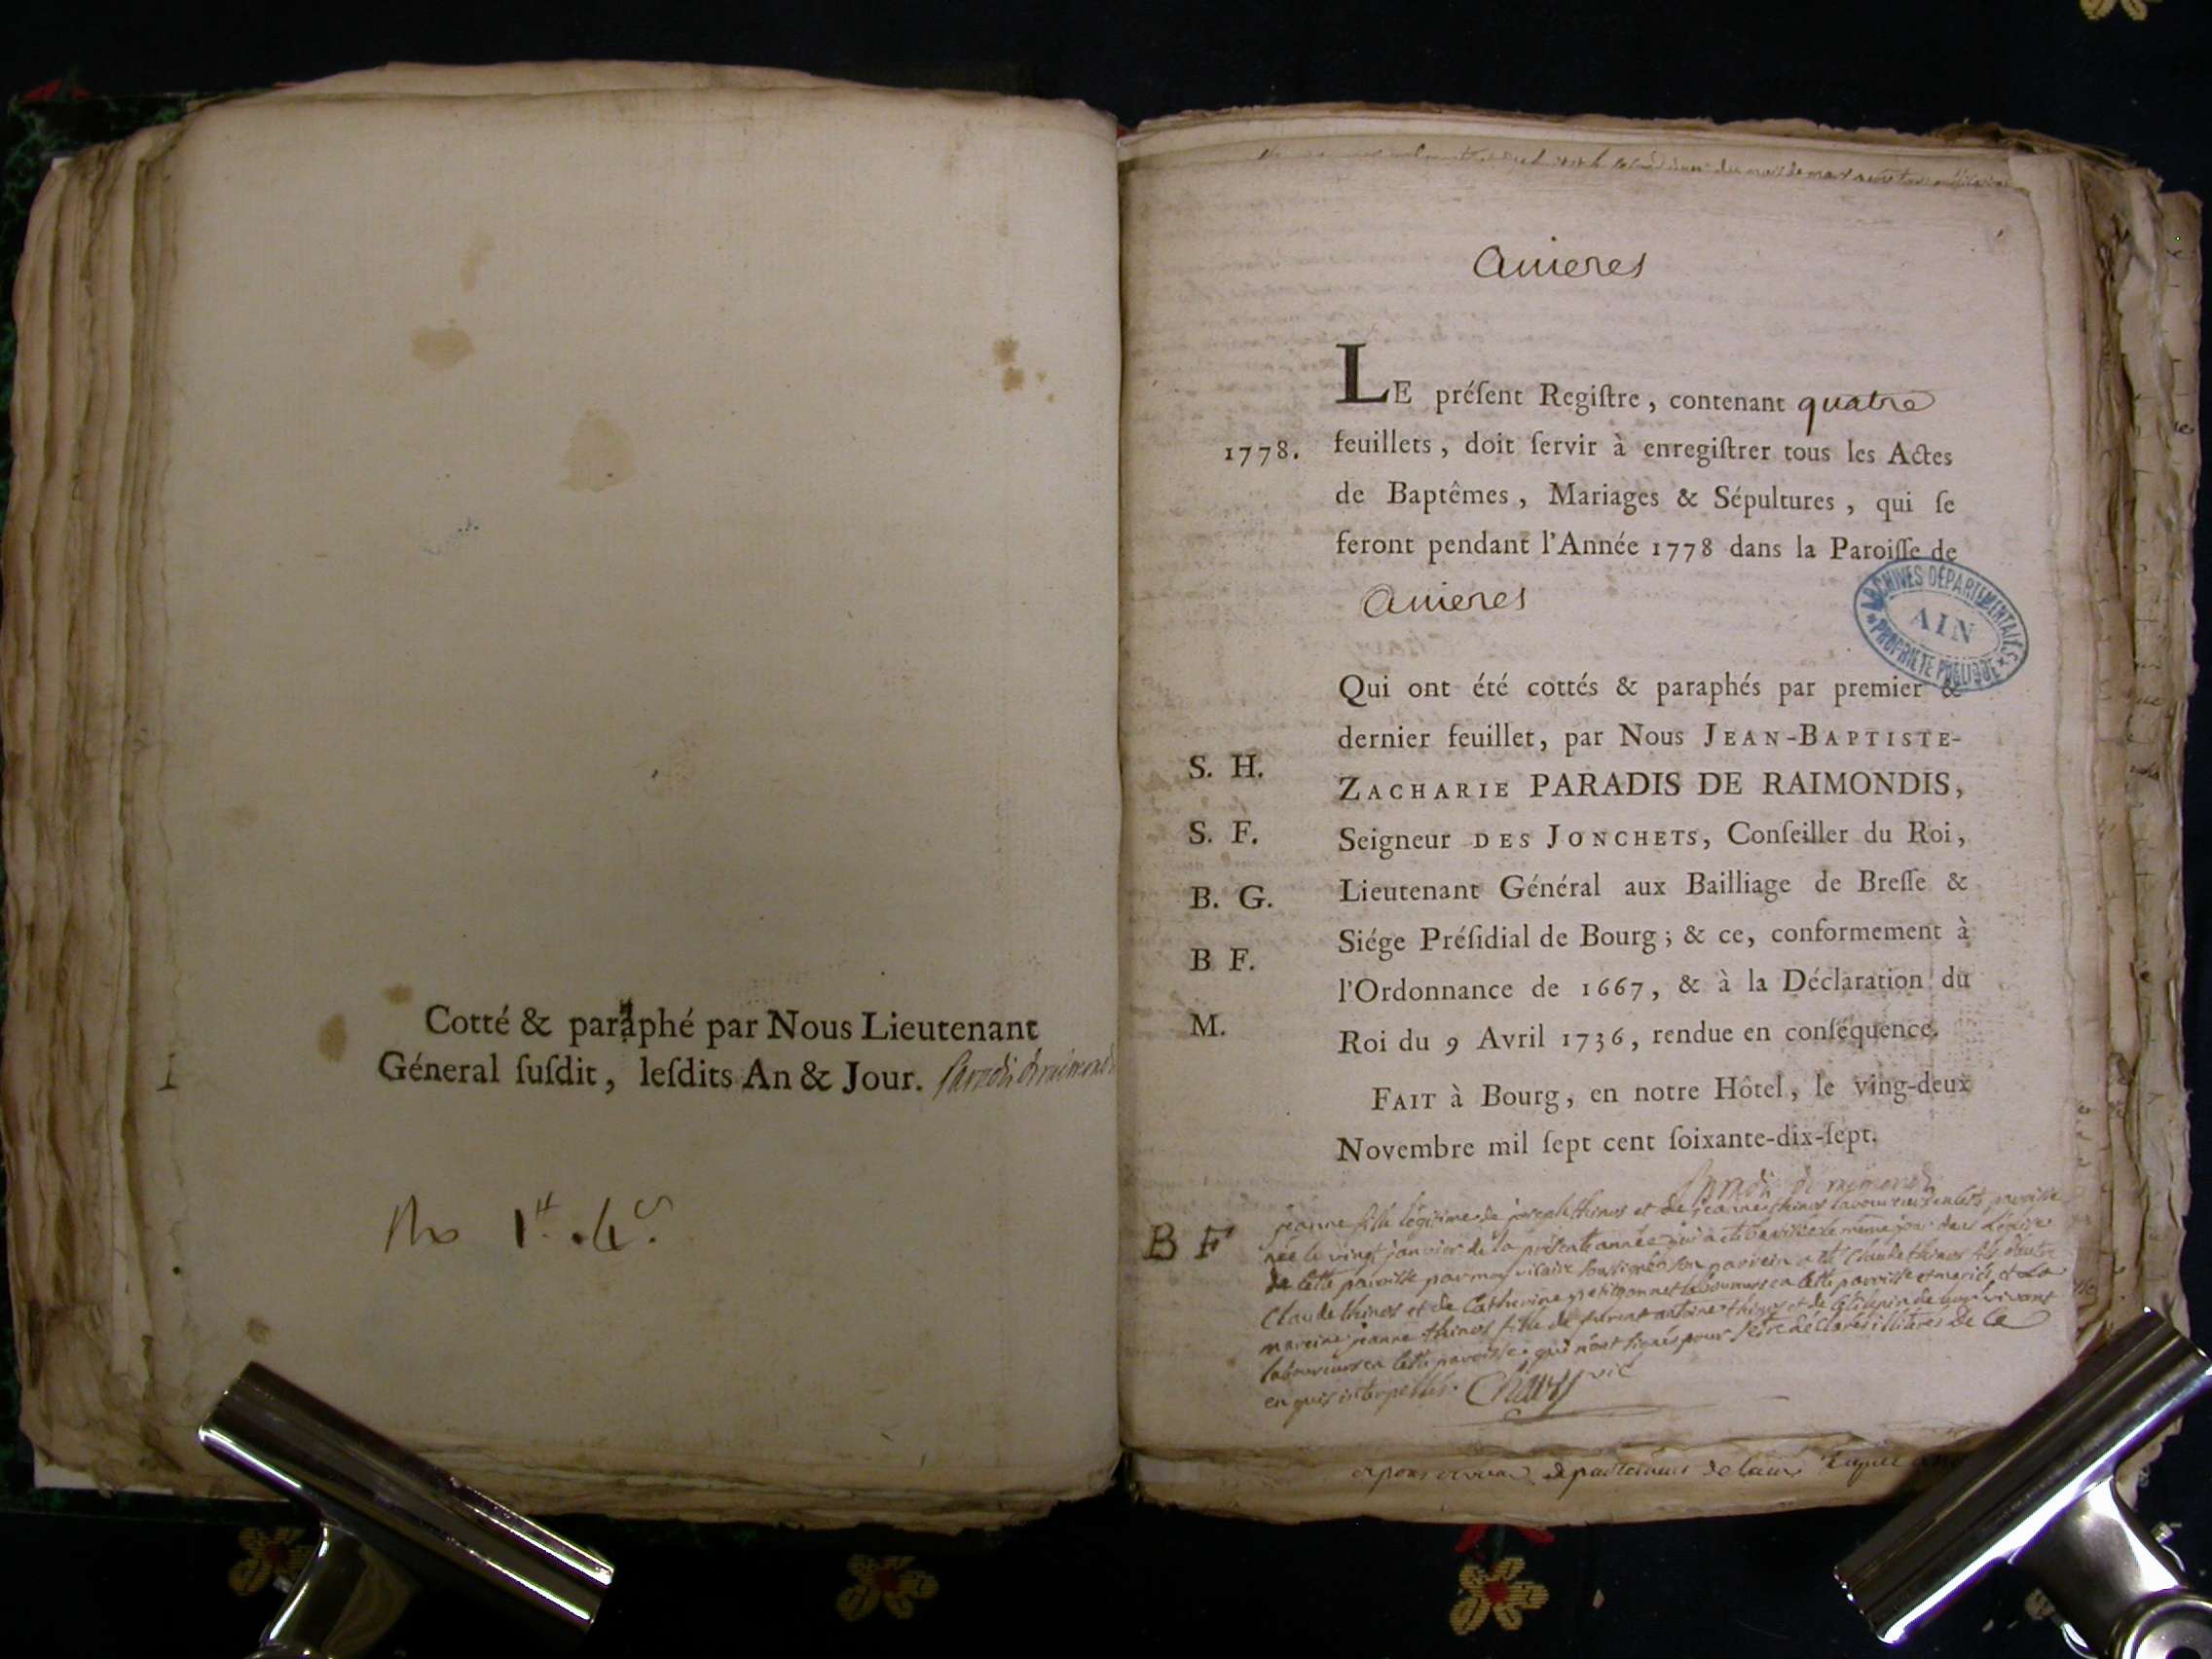 Cotté & paraphé par Nous Lieutenant
Géneral ſuſdit, leſdits An & Jour.
Asnieres
LE préſent Regiſtre, contenant quatre
1778.
feuillets, doit ſervir à enregiſtrer tous les Actes
de Baptêmes, Mariages & Sépultures, qui ſe
feront pendant l'Année 1778 dans la Paroiſſe de
Asnieres
ARCHIVES DÉPARTEMENTALES
AIN
PROPRIÉTÉ PUBLIQUE
Qui ont été cottés & paraphés par premier &
dernier feuillet, par Nous JEAN-BAPTISTE-
S. H.
ZACHARIE PARADIS DE RAIMONDIS,
S. F.
Seigneur DES JONCHETS, Conſeiller du Roi,
B. G.
Lieutenant Général aux Bailliage de Breſſe &
Siége Préſidial de Bourg; & ce, conformement à
B F.
l'Ordonnance de 1667, & à la Déclaration du
M.
Roi du 9 Avril 1736, rendue en conſéquence.
FAIT à Bourg, en notre Hôtel, le ving-deux
Novembre mil ſept cent ſoixante-dix-ſept.
B F
jeanne fille légitime de joseph thinos et de jeanne thinos laboureurs en cette paroisse
née le vingt janvier de la présente année qui a été baptisée le même jour dans l'église
de cette paroisse par moy vicaire soussigné son parrein a été Claude thinos fils d'autre
Claude thinos et de Catherine laboureurs en cette paroisse et la
mareine jeanne thinos fille de antoine thinos et de vivant
laboureurs en cette paroisse qui n'ont signés pour être déclarés illitérés de ce
enquis interpellés. Chavy vic